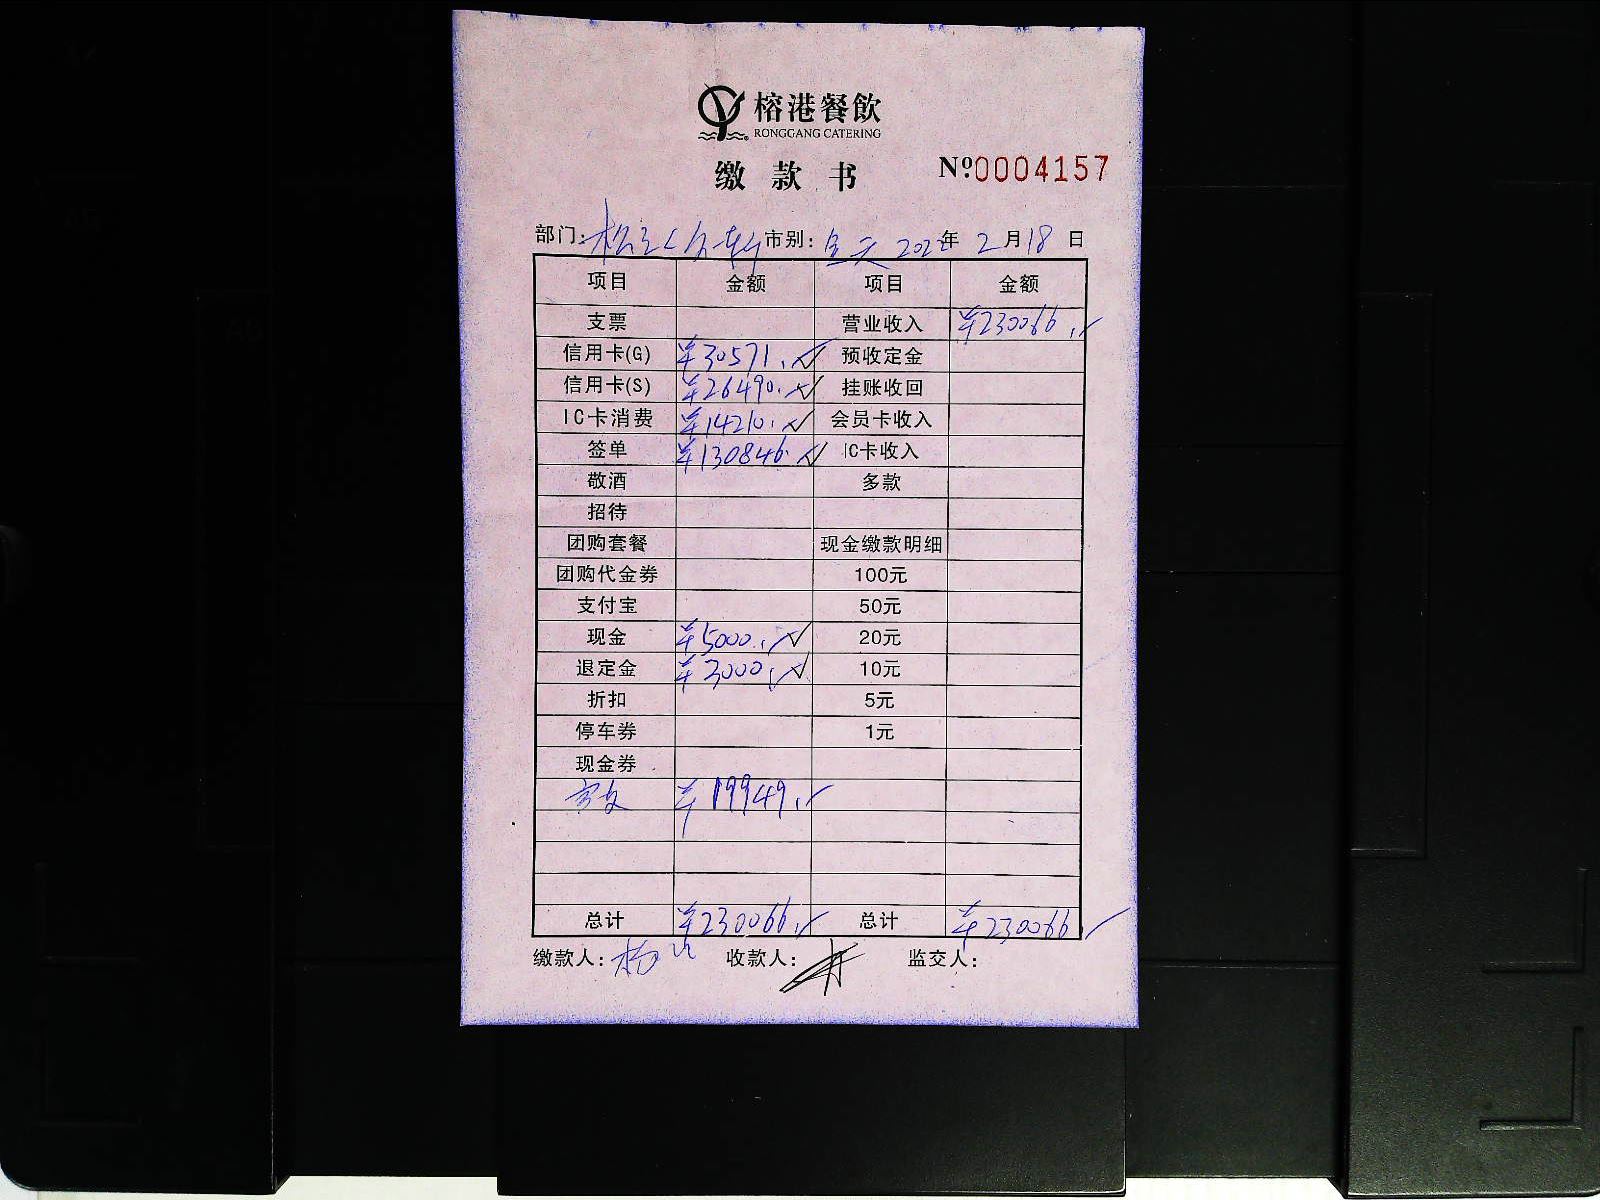 榕港餐飲
RONGGANG CATERING
缴款书 №:0004157
部门: 市别: 全天 2022年 2月18日
项目 金额 项目 金额
支票 营业收入 ¥230066.
信用卡(G) ¥30571. 预收定金
信用卡(S) ¥26490. 挂账收回
IC卡消费 ¥14210. 会员卡收入
签单 ¥130846. IC卡收入
敬酒 多款
招待
团购套餐 现金缴款明细
团购代金券 100元
支付宝 50元
现金 ¥5000. 20元
退定金 ¥3000. 10元
折扣 5元
停车券 1元
现金券
¥19949.
总计 ¥230066. 总计 ¥230066
缴款人: 收款人: 监交人: